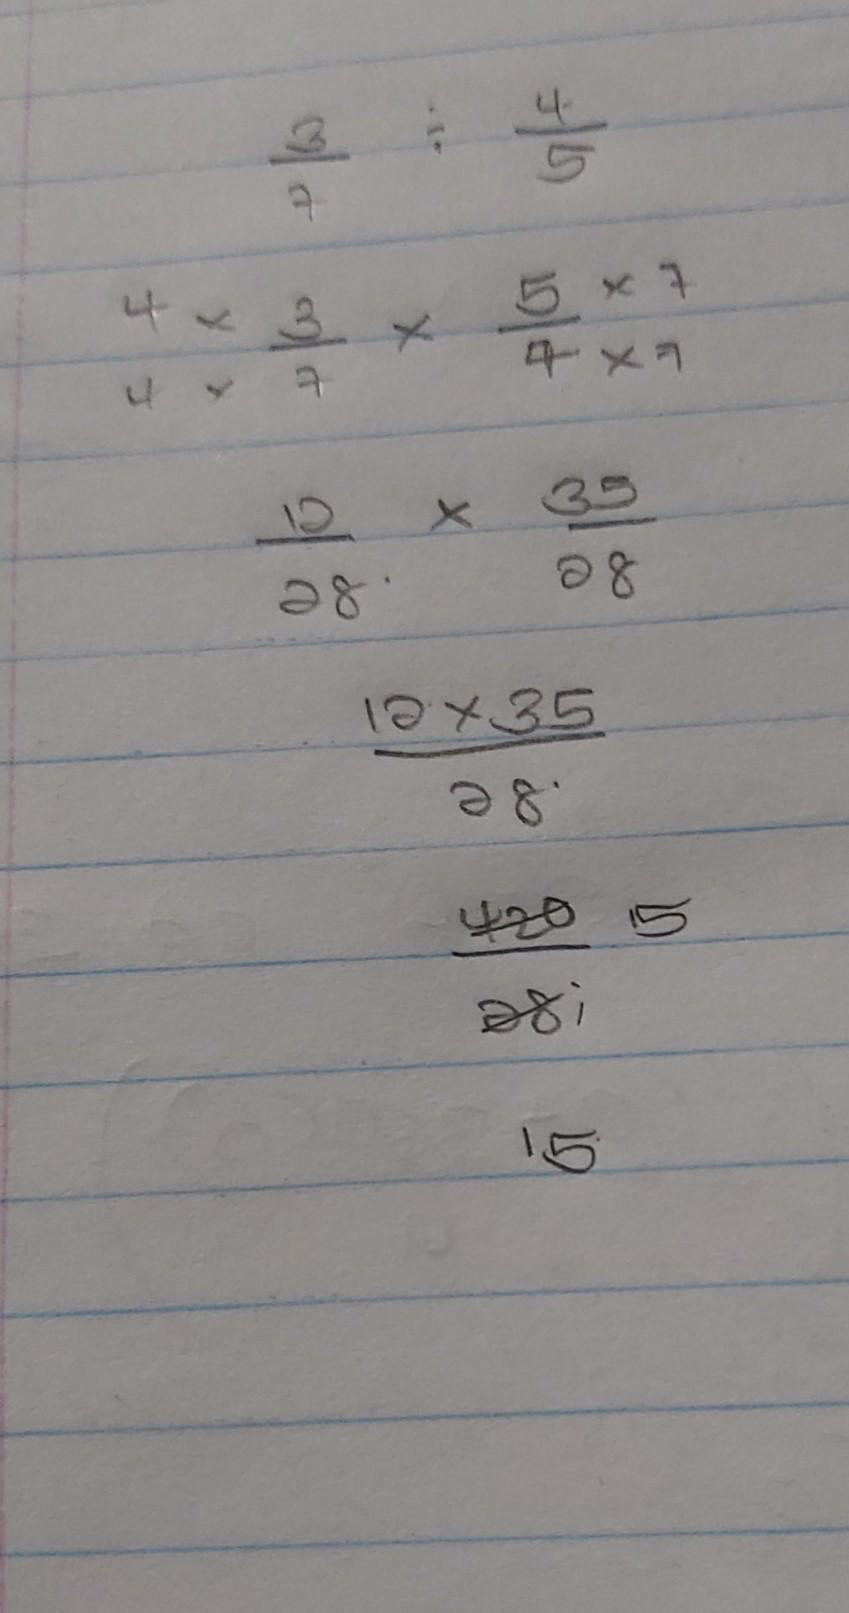 3/7 ÷ 4/5
4 × 3/4 × 7 × 5 × 7/4 × 7
12/28 × 35/28
12 × 35/28
420/28 15/1
15